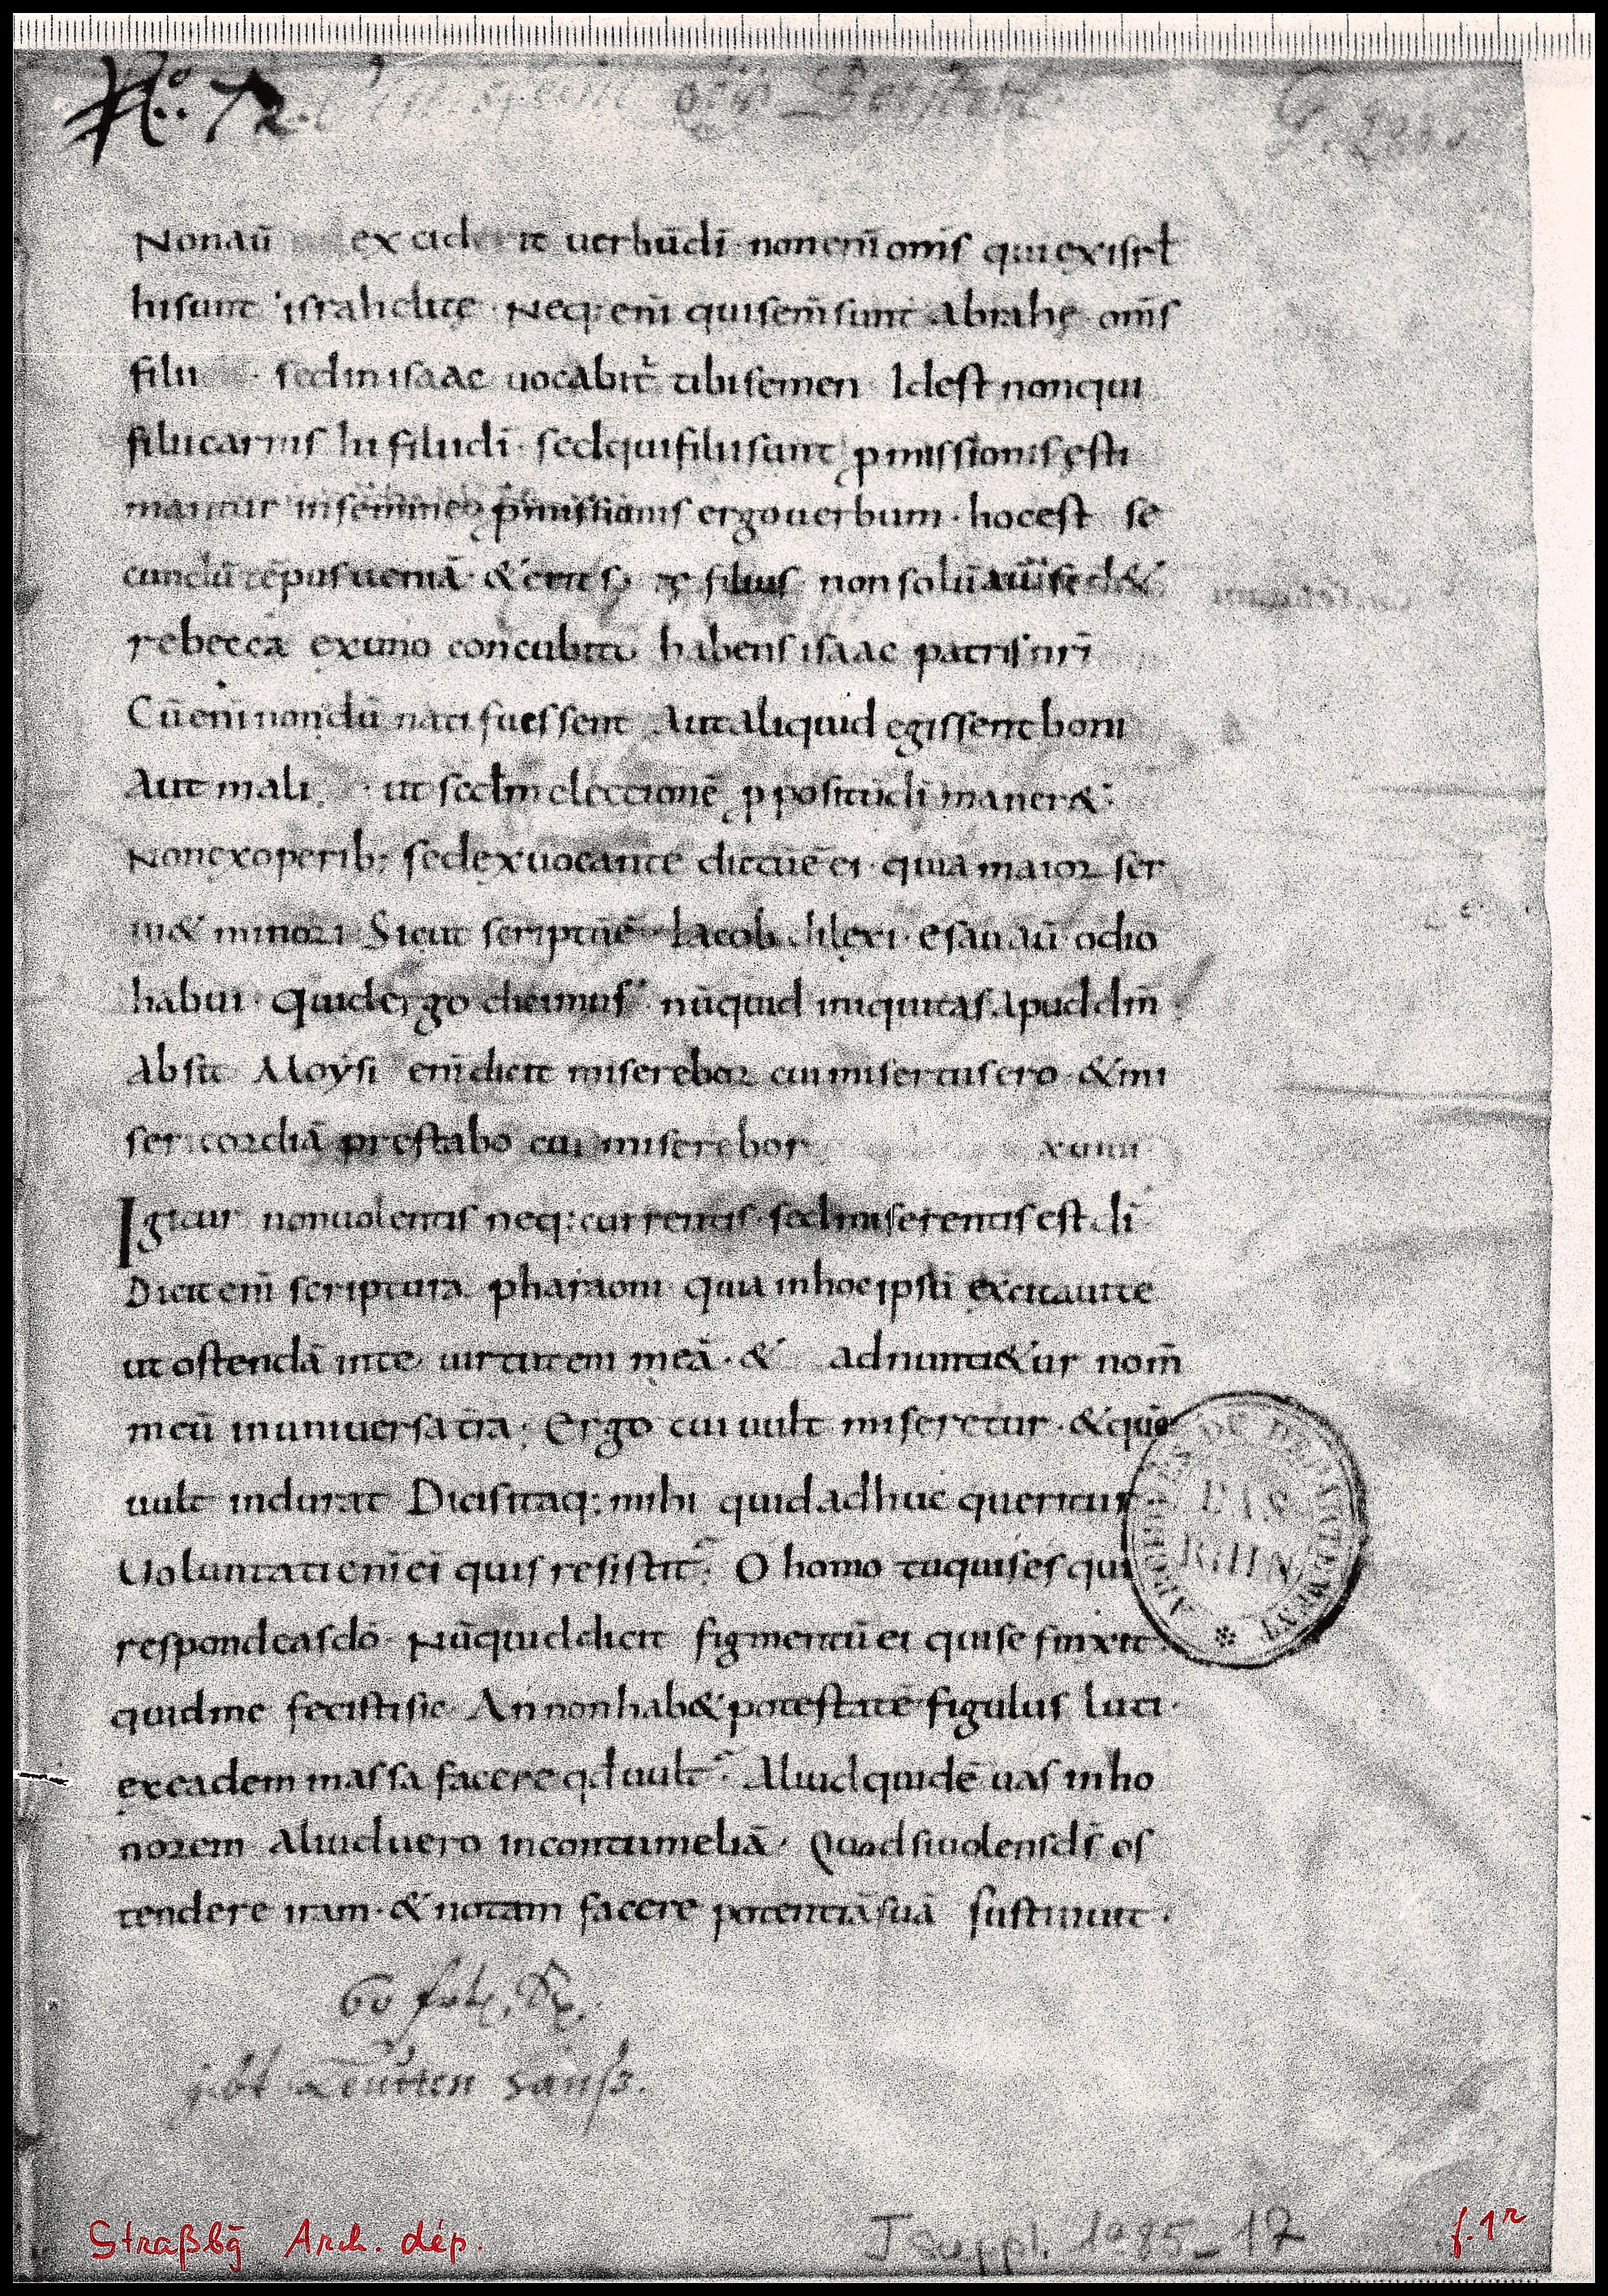 No. 72.
Nonaū excider it uerbūdī· nonenīomīs quiexisrł
hisunt israhelitę· Neq;enī quisem̄sunt abrahę· om̄s
filii · sedinisaac uocabit᷑ tibisemen· Idest nonqui
filiicarnis hi filiidī· sedquifiliisunt p̱missionis ęsti
mantur insemine· p̱missionis ergouerbum· hocest se
cundū tēpusueniā· & erit filius· non solū aū sed&
rebecca exuno concubitu habens isaac patrisnrī
Cūenīnondū natifuessent Autaliquid egissentboni
Aut mali · ut secdm electionē p̱positūdī maner&·
Nonexoperib; sedexuocante dictūē ei· quia maior ser
ui& minori Sicut scriptūē· Iacob dilexi· esau aū odio
habui· Quidergo dicimus· nūquid iniquitas apuddm̄
Absit Moysi enīdicit miserebor cuimisertusero· &mi
sericordiā prestabo cui miserebor xuiiii
Igitur nonuolentis neq;currentis· sedmiserentis est dī
Dicit enī scriptura pharaoni· quia inhocipsū excitauite
ut ostendā inte uirtutem meā· & adnunti&ur nom̄
meū inuniuersa tra· Ergo cui uult miseretur· &quē
uult indurat Dicisitaq; mihi quidadhuc queritur
Uoluntatienī ei quis resistit· O homo tuquises qui
respondeasdō· Nūquiddicit figmentū ei quise finxit
quidme fecistisic· Annonhab& potestatē figulus luti·
exeadem massa facere qd uult· Aliudquidē uas inho
norem aliuduero incontumeliā· Quodsiuolensds̄ os
tendere iram· & notam facere potentiāsuā sustinuit·
ARCHIVES DU DÉPARTEMENT
BAS
RHIN
Straßbg Arch. dép.
J suppl. 1985-17
f. 1r